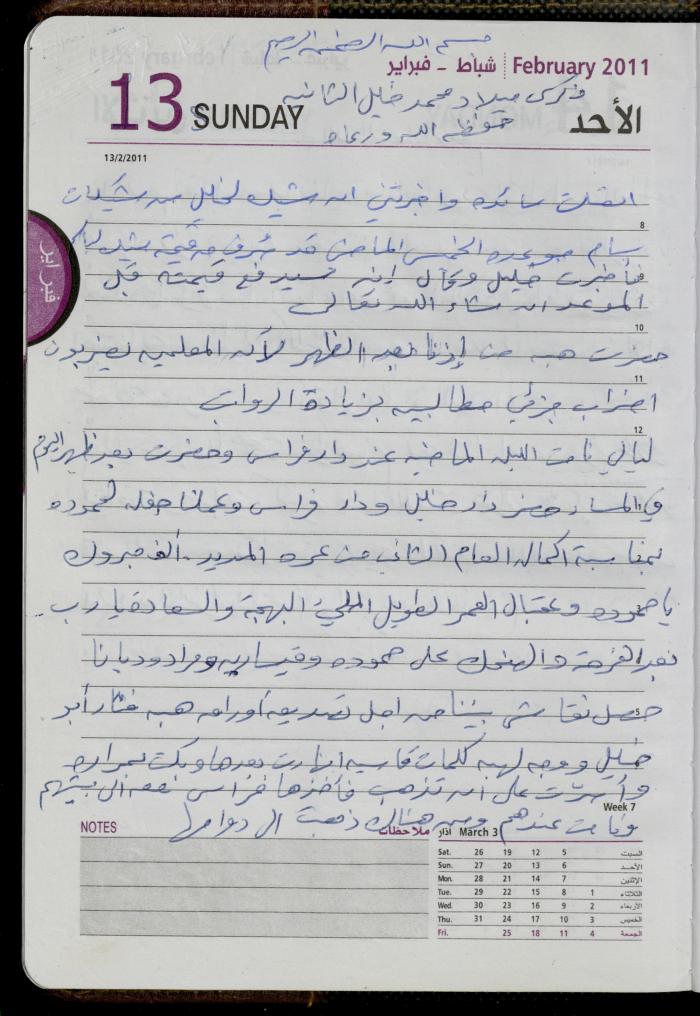 بسم الله الرحمن الرحيم
شباط - فبراير February 2011
13 SUNDAY الأحد
ذكرى ميلاد محمد خليل الثانية
حفظه الله ورعاه
13/2/2011
اتصلت سائده واخبرتني ان شيك لخليل من شيكات
8
بسام موعده الخميس الماضي قد صرف
9
فأخبرت خليل وقال إنه سيدفع قيمته قبل
الموعد ان شاء الله تعالى
10
حضرت هبه من إذنا بعد الظهر لأن المعلمين يضربون
11
اضراب جزئي مطالبين بزيادة الرواتب
12
ليالي نامت الليلة الماضيه عند دار فراس وحضرت بعد ظهر اليوم
في المساء حضر دار خليل ودار فراس وعملنا حفله لحموده
بمناسبة اكمال العام الثاني من عمره المديد. ألف مبروك
يا حموده وعقبال العمر الطويل المليء البهجة والسعادة يا رب
بعد الفرحة والضحك على حموده وقيساريه ومراد وديانا
5
حصل نقاش بيننا من اجل تصديق أوراق هبه فثار أبو
خليل ووجه لهبه كلمات قاسيه انهارت بعدها وبكت بمراره
وأصرت على ان تذهب فأخذها فراس معه الى بيتهم
Week 7
ونامت عندهم ومن هناك ذهبت الى دوامها
NOTES ملاحظات
March 3 آذار
Sat. 26 19 12 5 السبت
Sun. 27 20 13 6 الأحد
Mon. 28 21 14 7 الإثنين
Tue. 29 22 15 8 1 الثلاثاء
Wed. 30 23 16 9 2 الأربعاء
Thu. 31 24 17 10 3 الخميس
Fri. 25 18 11 4 الجمعة
فبراير